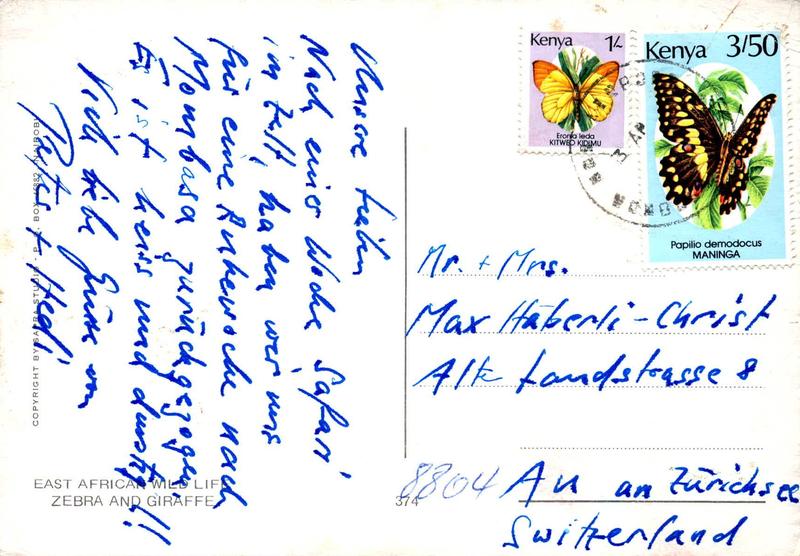 Unsere Lieben
Nach einer Woche Safari
im Zelt, haben wir uns
für eine Ruhewoche nach
Mombasa zurückgezogen.
Es ist heiss und dunstig!!
Viele liebe Grüsse von
+ Hedi
Kenya 1/-
Eronia leda
KITWEO KIDIMU
Kenya 3/50
Papilio demodocus
MANINGA
Mr. + Mrs.
Max Häberli-Christ
Alte Landstrasse 8
8804 Au am Zürichsee
Switzerland
COPYRIGHT BY SAPRA STUDIO - P.O. BOX NAIROBI
EAST AFRICAN WILD LIFE
ZEBRA AND GIRAFFE
374